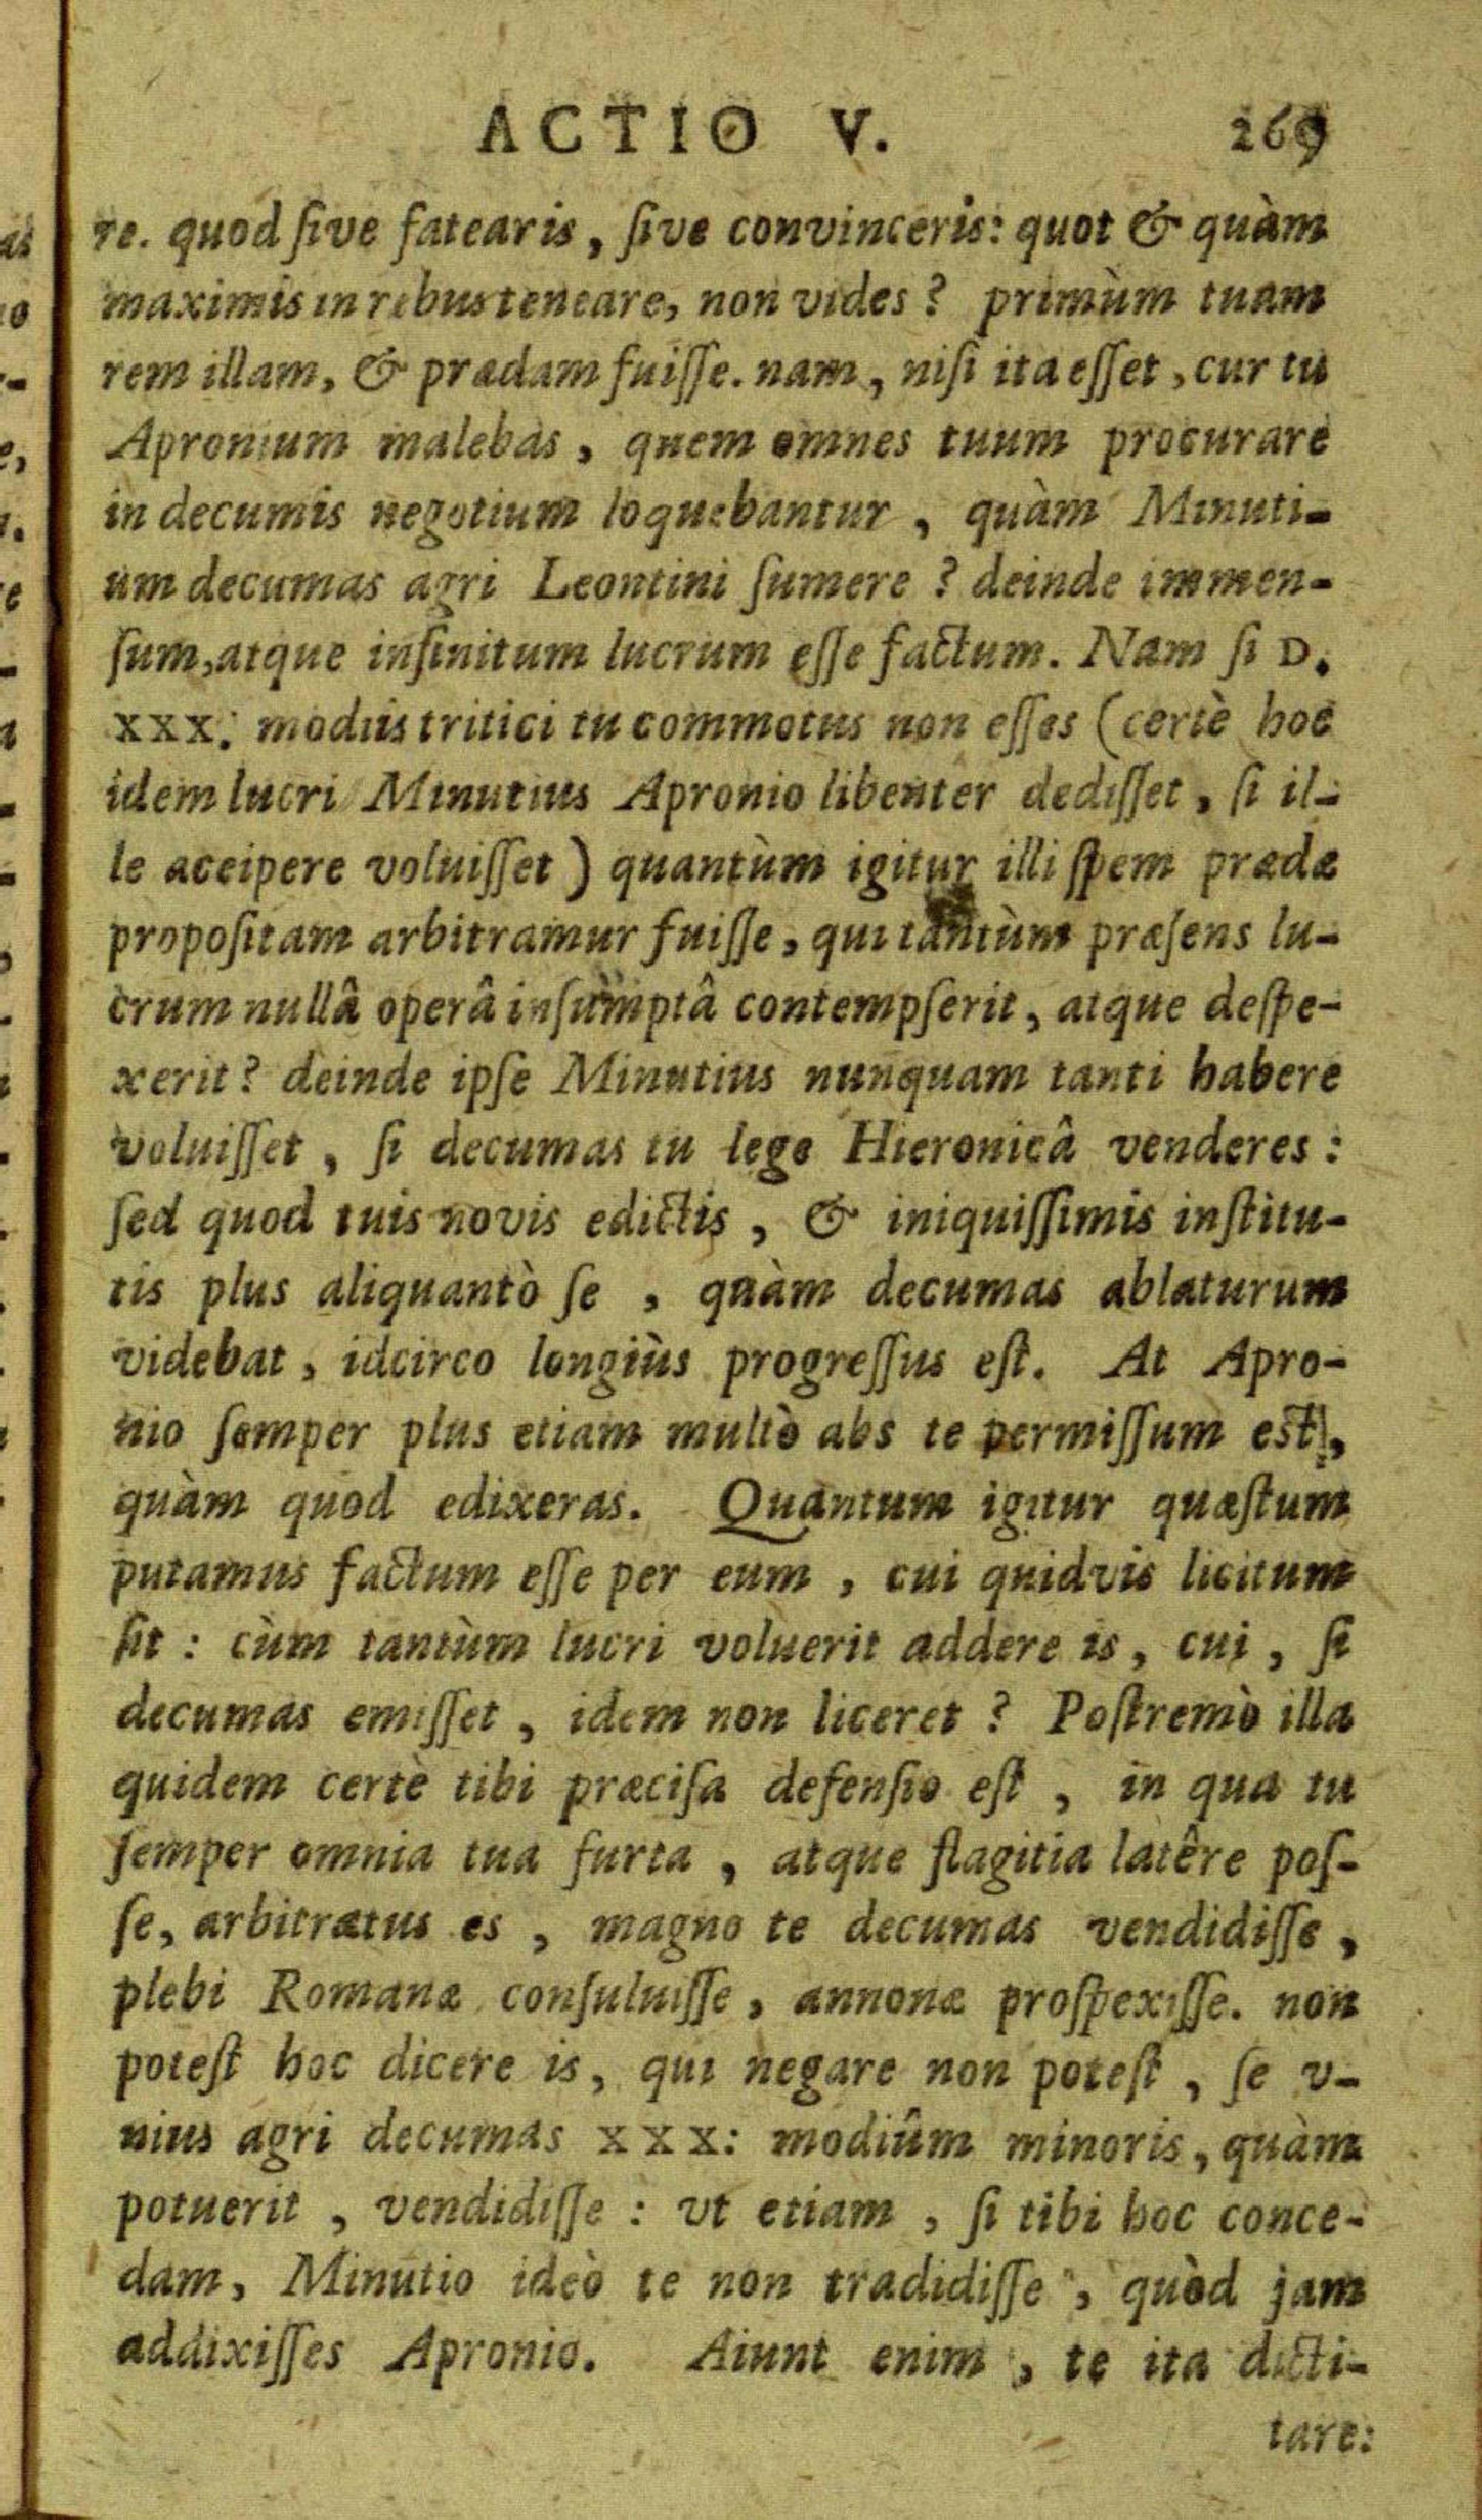 ACTIO V. 269
re. quod ſive fatearis, ſive convinceris: quot & quàm
maximis in rebus teneare, non vides? primùm tuam
rem illam, & prædam fuiſſe. nam, niſi ita eſſet, cur tu
Apronium malebas, quem omnes tuum procurare
in decumis negotium loquebantur, quàm Minuti-
um decumas agri Leontini ſumere? deinde immen-
ſum, atque infinitum lucrum eſſe factum. Nam ſi D.
XXX: modiis tritici tu commotus non eſſes (certè hoc
idem lucri Minutius Apronio libenter dediſſet, ſi il-
le accipere voluiſſet) quantùm igitur illi ſpem prædæ
propoſitam arbitramur fuiſſe, qui tantùm præſens lu-
crum nullâ operâ inſumptâ contempſerit, atque deſpe-
xerit? deinde ipſe Minutius nunquam tanti habere
voluiſſet, ſi decumas tu lege Hieronicâ venderes:
ſed quod tuis novis edictis, & iniquiſſimis inſtitu-
tis plus aliquantò ſe, quàm decumas ablaturum
videbat, idcirco longiùs progreſſus eſt. At Apro-
nio ſemper plus etiam multò abs te permiſſum est,
quàm quod edixeras. Quantum igitur quæſtum
putamus factum eſſe per eum, cui quidvis licitum
ſit: cùm tantùm lucri voluerit addere is, cui, ſi
decumas emiſſet, idem non liceret? Poſtremò illa
quidem certè tibi præciſa defenſio eſt, in qua tu
ſemper omnia tua furta, atque flagitia latêre poſ-
ſe, arbitratus es, magno te decumas vendidiſſe,
plebi Romanæ conſuluiſſe, annonæ proſpexiſſe. non
poteſt hoc dicere is, qui negare non poteſt, ſe v-
nius agri decumas XXX: modiûm minoris, quàm
potuerit, vendidiſſe: vt etiam, ſi tibi hoc conce-
dam, Minutio ideò te non tradidiſſe, quòd jam
addixiſſes Apronio. Aiunt enim, te ita dicti-
tare: